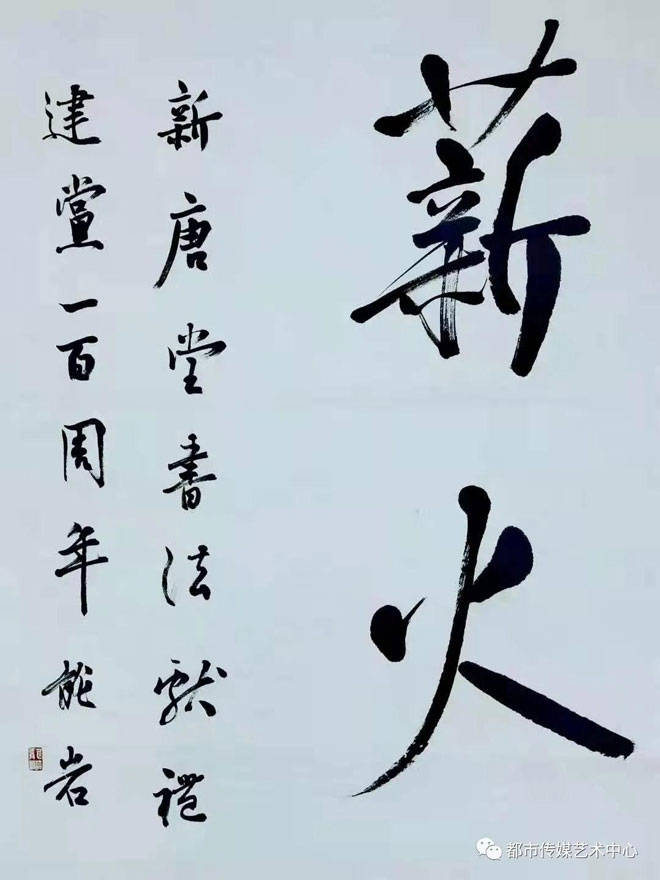 薪火
新唐堂書法獻禮
建黨一百周年 能岩
都市传媒艺术中心